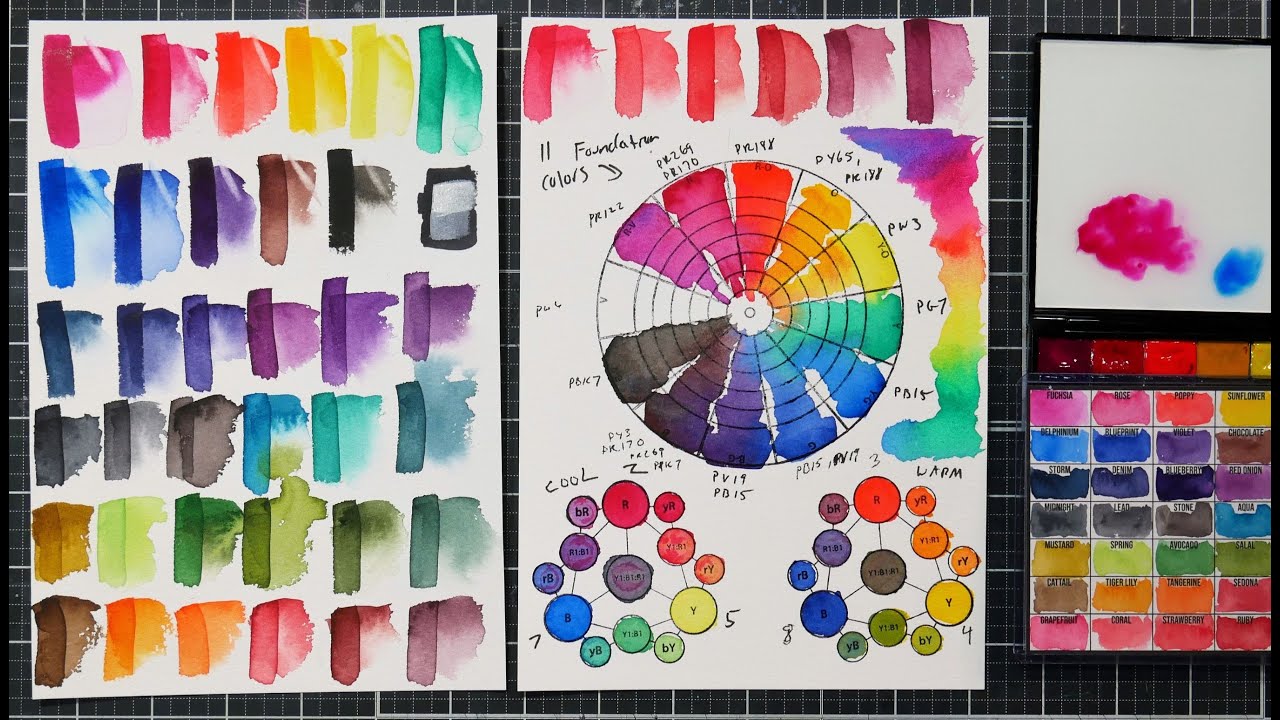 11 Foundation
Colors
PR209
PR170
PR188
PY65,
PR188
PR122
R-O
O
RV
Y-O
PW3
PG7
PW6
PBK7
PB15
PY3
PR170
PR209
PBK7
PV19
PB15
PB15, PV19
COOL
WARM
3
2
bR
R
yR
R1:B1
Y1:R1
rB
Y1:B1:R1
rY
B
Y
Y1:B1
yB
bY
7
5
bR
R
yR
R1:B1
Y1:R1
rB
Y1:B1:R1
rY
B
Y
Y1:B1
yB
bY
8
4
FUCHSIA ROSE POPPY SUNFLOWER
DELPHINIUM BLUEPRINT VIOLET CHOCOLATE
STORM DENIM BLUEBERRY RED ONION
MIDNIGHT LEAD STONE AQUA
MUSTARD SPRING AVOCADO SALAL
CATTAIL TIGER LILY TANGERINE SEDONA
GRAPEFRUIT CORAL STRAWBERRY RUBY